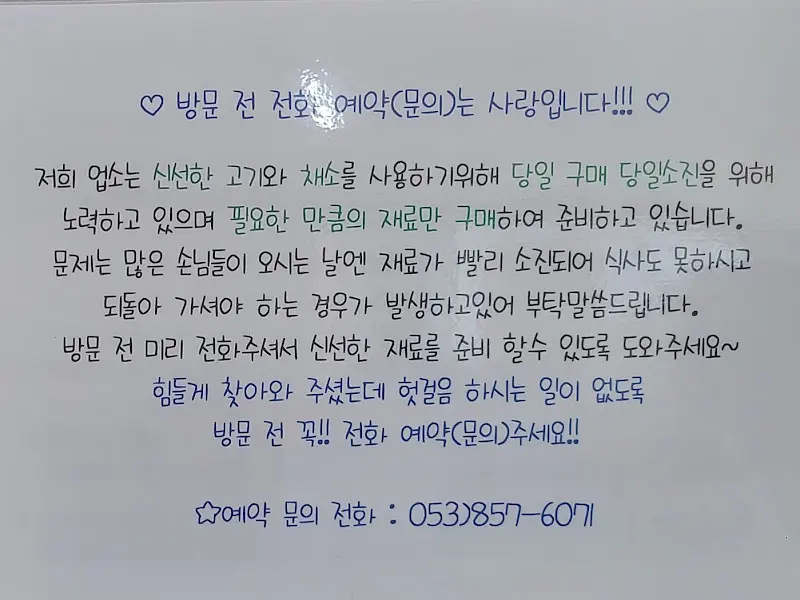 ♡ 방문 전 전화 예약(문의)는 사랑입니다!!! ♡
저희 업소는 신선한 고기와 채소를 사용하기위해 당일 구매 당일소진을 위해
노력하고 있으며 필요한 만큼의 재료만 구매하여 준비하고 있습니다.
문제는 많은 손님들이 오시는 날엔 재료가 빨리 소진되어 식사도 못하시고
되돌아 가셔야 하는 경우가 발생하고있어 부탁말씀드립니다.
방문 전 미리 전화주셔서 신선한 재료를 준비 할수 있도록 도와주세요~
힘들게 찾아와 주셨는데 헛걸음 하시는 일이 없도록
방문 전 꼭!! 전화 예약(문의)주세요!!
☆예약 문의 전화 : 053)857-6071